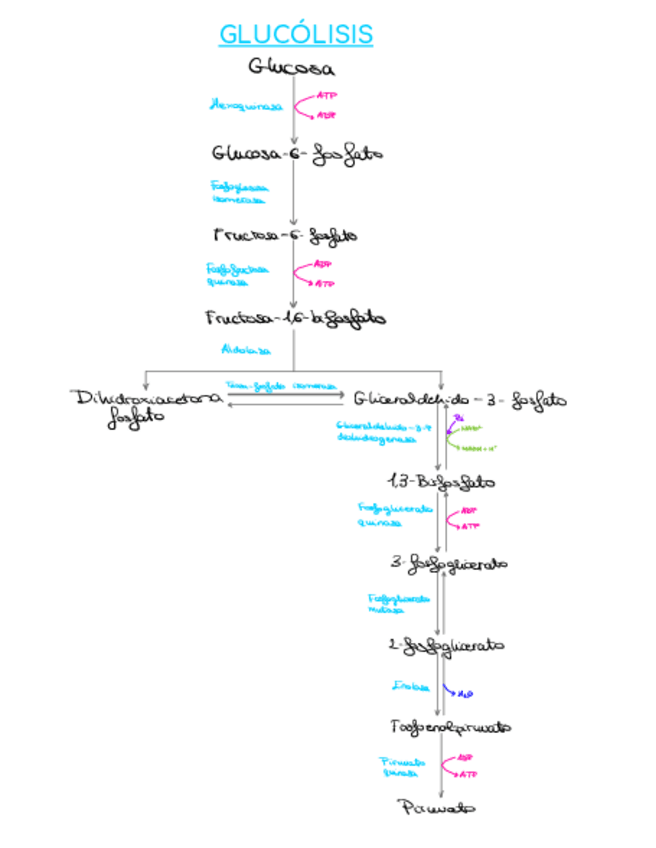 GLUCÓLISIS
Glucosa
Hexoquinasa
ATP
ADP
Glucosa-6-fosfato
Fosfoglucosa
isomerasa
Fructosa-6-fosfato
Fosfofructosa
quinasa
ADP
ATP
Fructosa-1,6-bifosfato
Aldolasa
Triosa-fosfato isomerasa
Dihidroxiacetona
fosfato
Gliceraldehido-3-fosfato
Gliceraldehido-3-P
deshidrogenasa
Pi
NAD+
NADH+H+
1,3-Bifosfato
Fosfoglicerato
quinasa
ADP
ATP
3-fosfoglicerato
Fosfoglicerato
mutasa
2-fosfoglicerato
Enolasa
H₂O
Fosfoenolpiruvato
Piruvato
quinasa
ADP
ATP
Piruvato